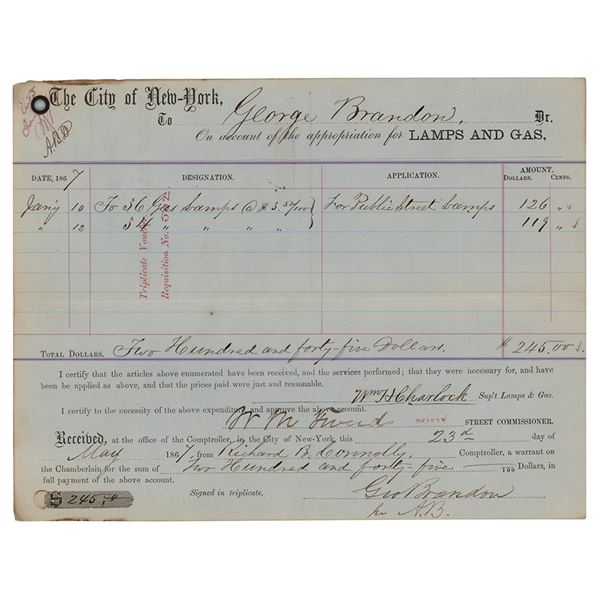 The City of New-York,
To George Brandon, Dr.
On account of the appropriation for LAMPS AND GAS,
DATE, 1867 DESIGNATION. APPLICATION. AMOUNT.
DOLLARS. CENTS.
Jan'y 10 To 36 Gas Lamps @ $3.50/100 For Public Street Lamps 126 " "
" 12 34 " " " " 119 " "
Triplicate Voucher
Requisition No.
TOTAL DOLLARS. Two Hundred and forty-five Dollars. $ 245.00
I certify that the articles above enumerated have been received, and the services performed; that they were necessary for, and have
been applied as above, and that the prices paid were just and reasonable.
Wm H Charlock Sup't Lamps & Gas.
I certify to the necessity of the above expenditure and approve the above account.
W M Tweed DEPUTY STREET COMMISSIONER.
Received, at the office of the Comptroller, in the City of New-York, this 23d day of
May 1867, from Richard B. Connolly, Comptroller, a warrant on
the Chamberlain for the sum of Two Hundred and forty-five Dollars, in
full payment of the above account.
Signed in triplicate. Geo Brandon
$ 245, pr A.B.